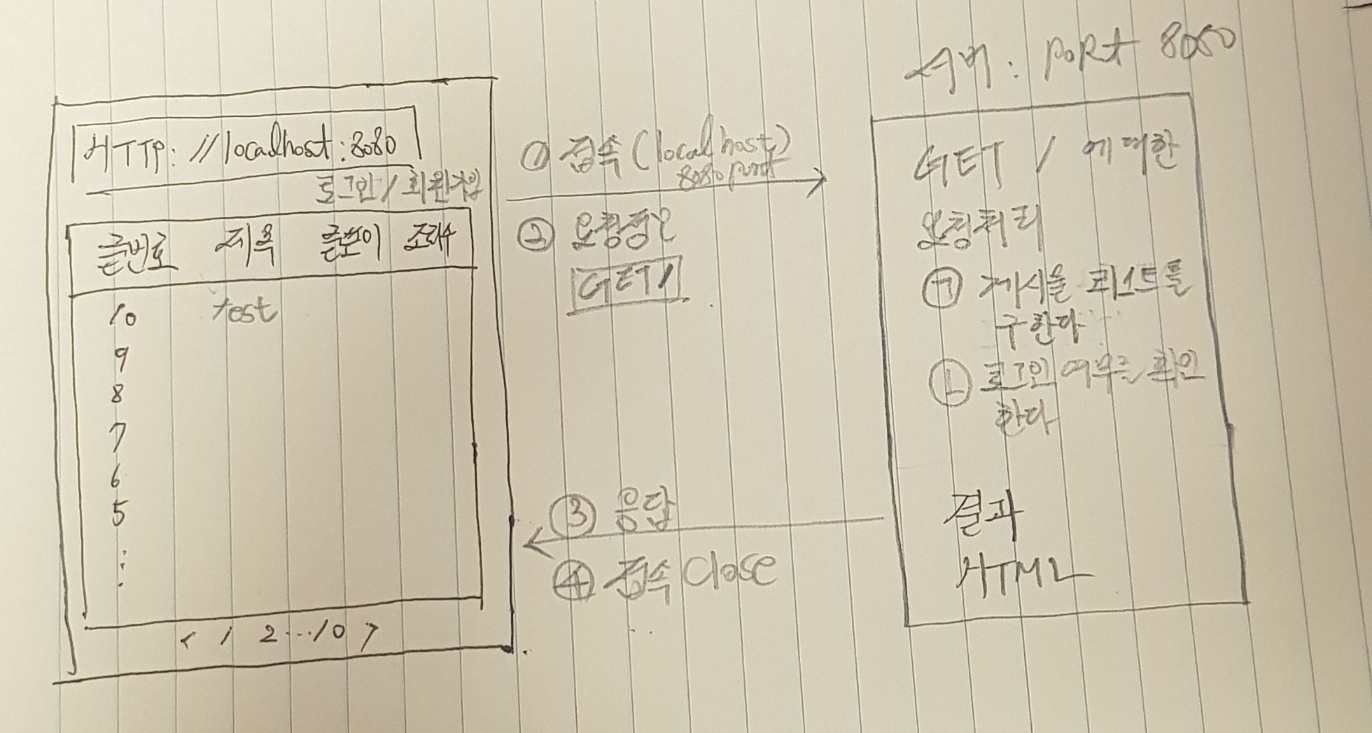 HTTP://localhost:8080
로그인/회원가입
글번호 제목 글쓴이 조회수
10 test
9
8
7
6
5
⋮
< 1 2...10 >
① 접속(localhost)
8080 port
② 요청정보
GET /
③ 응답
④ 접속 Close
서버: PORT 8080
GET / 에 대한
요청처리
㉠ 게시물 리스트를
구한다
㉡ 로그인 여부를 확인
한다
결과
HTML